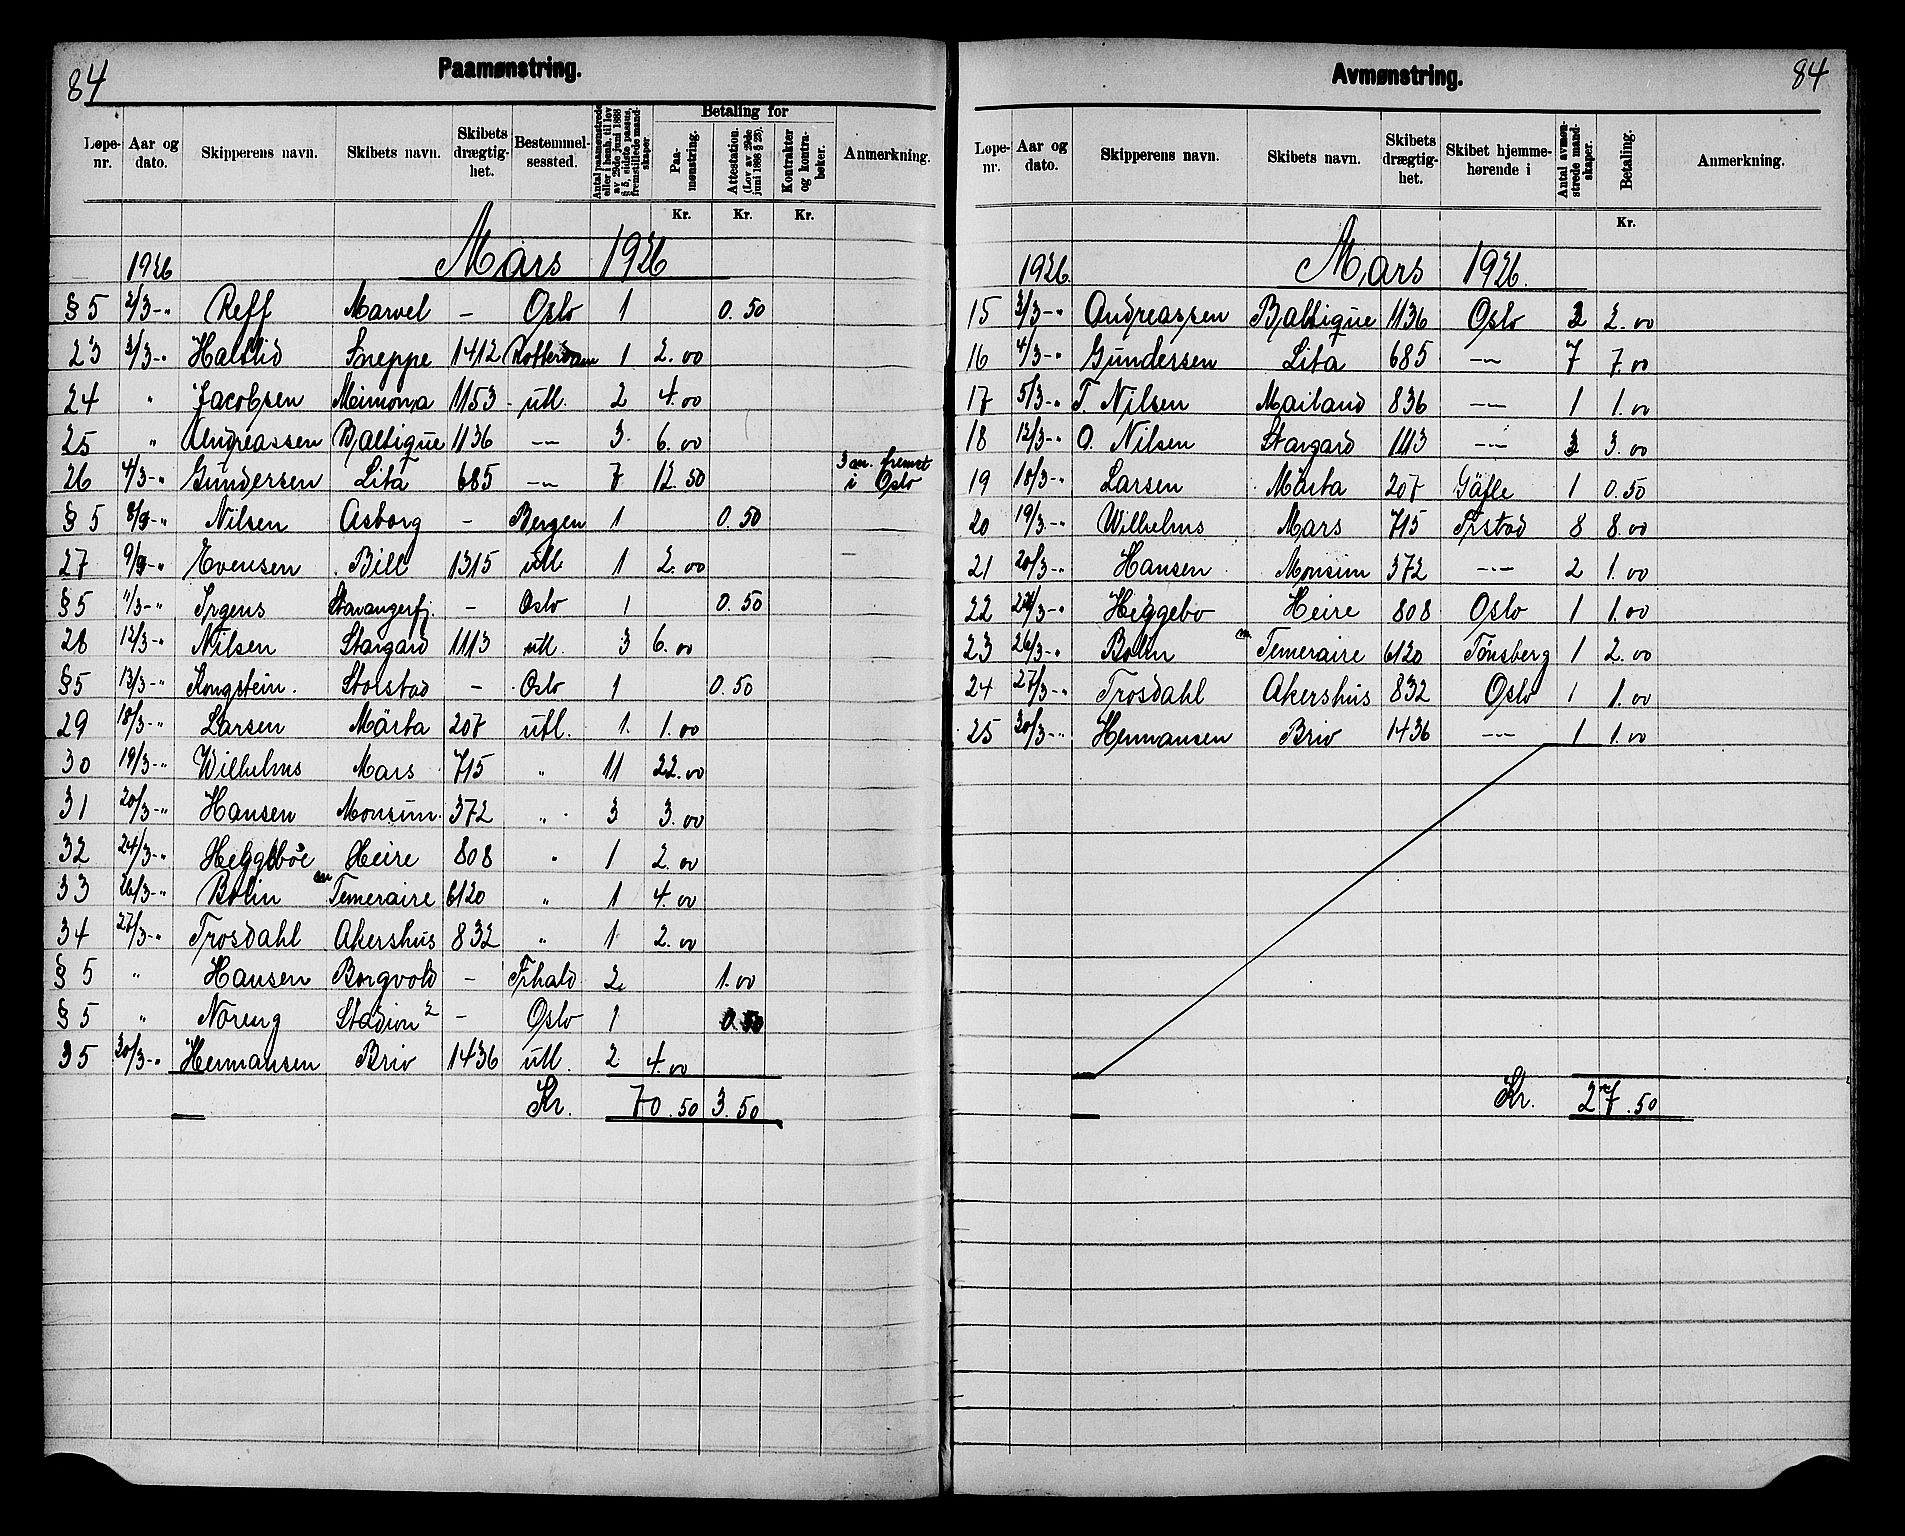 84
Paamønstring.
Løpe-nr. Aar og dato. Skipperens navn. Skibets navn. Skibets drægtig-het. Bestemmel-sessted. Antal paamønstrede eller i henh. til lov av 29de juni 1888 § 5, sidste passus, fremstillede mand-skaper Betaling for Paa-mønstring. Attestation. (Lov av 29de juni 1888 § 23). Kontrakter og kontra-bøker. Anmerkning.
Kr. Kr. Kr.
1926 Mars 1926
§ 5 2/3 -„ Reff Marvel - Oslo 1 0.50
23 3/3 -„ Halslid Sneppe 1412 Rotterdam 1 2.00
24 „ Jacobsen Mimona 1153 utl. 2 4.00
25 „ Andreassen Baltique 1136 -„- 3 6.00
26 4/3 -„ Gundersen Lita 685 -„- 7 12.50 3 an. fremst i Oslo
§ 5 8/3 -„ Nilsen Asborg - Bergen 1 0.50
27 9/3 -„ Evensen Bill 1315 utl 1 2.00
§ 5 11/3 -„ Irgens Stavangerfj. - Oslo 1 0.50
28 12/3 -„ Nilsen Stargard 1113 utl. 3 6.00
§ 5 13/3 -„ Kongstein. Storstad - Oslo 1 0.50
29 18/3 -„ Larsen Märta 207 utl. 1. 1.00
30 19/3 -„ Wilhelms Mars 715 „ 11 22.00
31 20/3 -„ Hansen Monsun. 372 „ 3 3.00
32 24/3 -„ Heggebøe Heire 808 „ 1 2.00
33 26/3 -„ Bolin Temeraire 6120 „ 1 4.00
34 27/3 -„ Trosdahl Akershus 832 „ 1 2.00
§ 5 „ Hansen Borgvold - Frhald 2 1.00
§ 5 „ Noreng Stadion 2 - Oslo 1 0.50
35 30/3 -„ Hermansen Briv 1436 utl. 2 4.00
Kr. 70.50 3.50
84
Avmønstring.
Løpe-nr. Aar og dato. Skipperens navn. Skibets navn. Skibets drægtig-het. Skibet hjemme-hørende i Antal avmøn-strede mand-skaper. Betaling. Anmerkning.
Kr.
1926. Mars 1926.
15 3/3 -„ Andreassen Baltique 1136 Oslo 2 2.00
16 4/3 -„ Gundersen Lita 685 -„- 7 7.00
17 5/3 -„ T. Nilsen Mailand 836 -„- 1 1.00
18 12/3 -„ O. Nilsen Stargard 1113 -„- 3 3.00
19 18/3 -„ Larsen Märta 207 Gäfle 1 0.50
20 19/3 -„ Wilhelms Mars 715 Frstad 8 8.00
21 20/3 -„ Hansen Monsun 372 -„- 2 1.00
22 24/3 -„ Heggebø Heire 808 Oslo 1 1.00
23 26/3 -„ Bolin Temeraire 6120 Tønsberg 1 2.00
24 27/3 -„ Trosdahl Akershus 832 Oslo 1 1.00
25 30/3 -„ Hermansen Briv 1436 -„- 1 1.00
Kr. 27.50